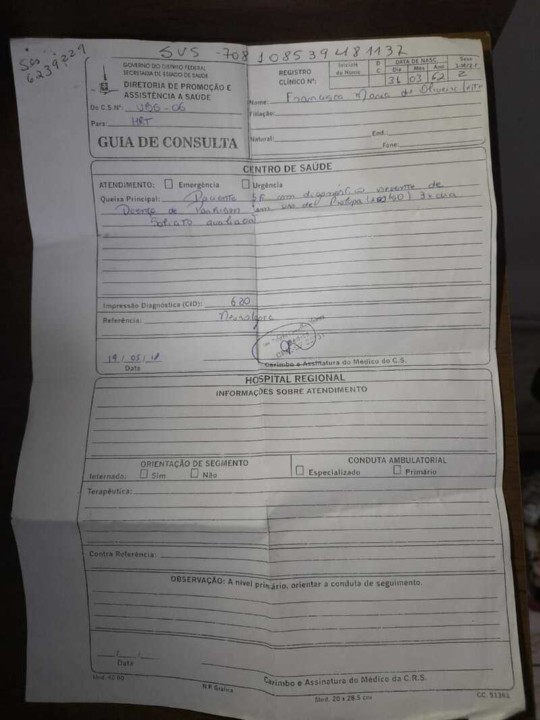 SUS 708108539481132
Ses
6239229
GOVERNO DO DISTRITO FEDERAL
SECRETARIA DE ESTADO DE SAÚDE
DIRETORIA DE PROMOÇÃO E
ASSISTÊNCIA A SAÚDE
Do C.S.Nº: UBS-06
Para: HRT
GUIA DE CONSULTA
REGISTRO
CLÍNICO Nº:
Iniciais
do Nome
DATA DE NASC.
Dia Mes Ano
31 03 62
Sexo
1-M/2-F
2
Nome: Francisca Maria de Oliveira
Filiação:
Natural: End.:
Fone:
CENTRO DE SAÚDE
ATENDIMENTO: Emergência Urgência
Queixa Principal: Paciente com diagnóstico recente de
Doença de Parkison em uso de Prolopa 3x dia
Solicito avaliação
Impressão Diagnóstica (CID): G20
Referência: Neurologia
19/05/18
Data
Carimbo e Assinatura do Médico do C.S.
HOSPITAL REGIONAL
INFORMAÇÕES SOBRE ATENDIMENTO
ORIENTAÇÃO DE SEGMENTO
Internado: Sim Não
CONDUTA AMBULATORIAL
Especializado Primário
Terapêutica:
Contra Referência:
OBSERVAÇÃO: A nível primário, orientar a conduta de seguimento.
/ /
Data
Carimbo e Assinatura do Médico da C.R.S.
N.P. Gráfica
Mod. 20 x 28.5 cm